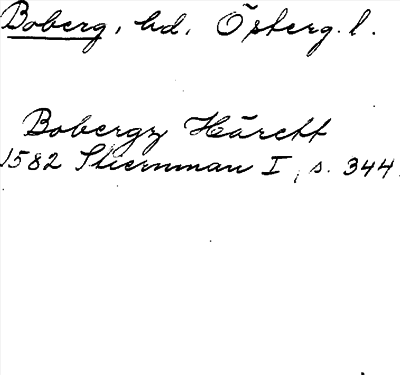 Boberg, hd, Österg. l.
Bobergz Härett
1582 Stiernman I, s. 344